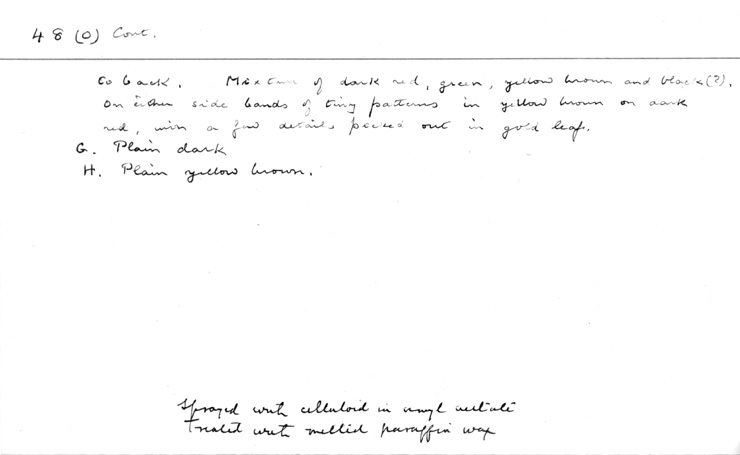 48 (0) Cont.
to back. Mixture of dark red, green, yellow brown and black (?).
On either side bands of tiny patterns in yellow brown on dark
red, with a few details picked out in gold leaf.
G. Plain dark
H. Plain yellow brown.
Sprayed with celluloid in amyl acetate
Treated with melted paraffin wax